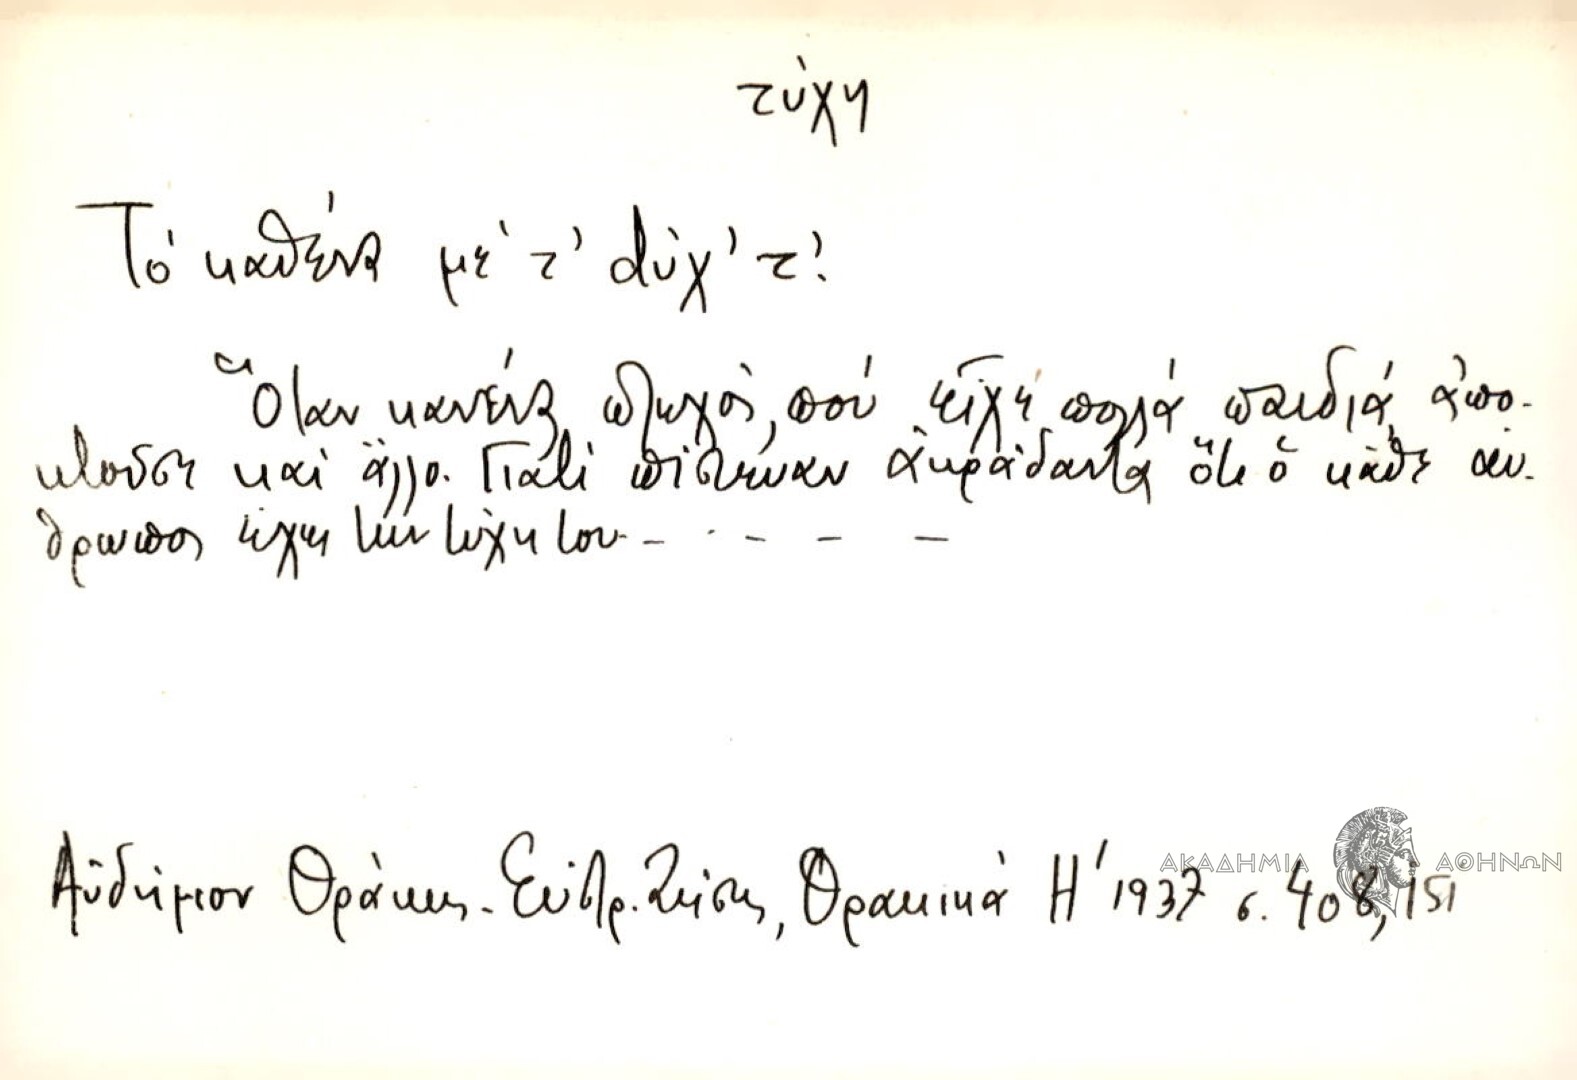 τύχη
Τό καθένα μέ τ' dύχ' τ'.
Ὅταν κανένας φτωχός, πού εἶχε πολλά παιδιά, ἀπο-
κτοῦσε καί ἄλλο. Γιατί πίστευαν ἀκράδαντα ὅτι ὁ κάθε ἄν-
θρωπος ἔχει τήν τύχη του - . - - -
Αὐδήμιον Θράκης - Εὐστρ. Ζήσης, Θρακικά Η' 1937 σ. 408, 151
ΑΚΑΔΗΜΙΑ ΑΘΗΝΩΝ